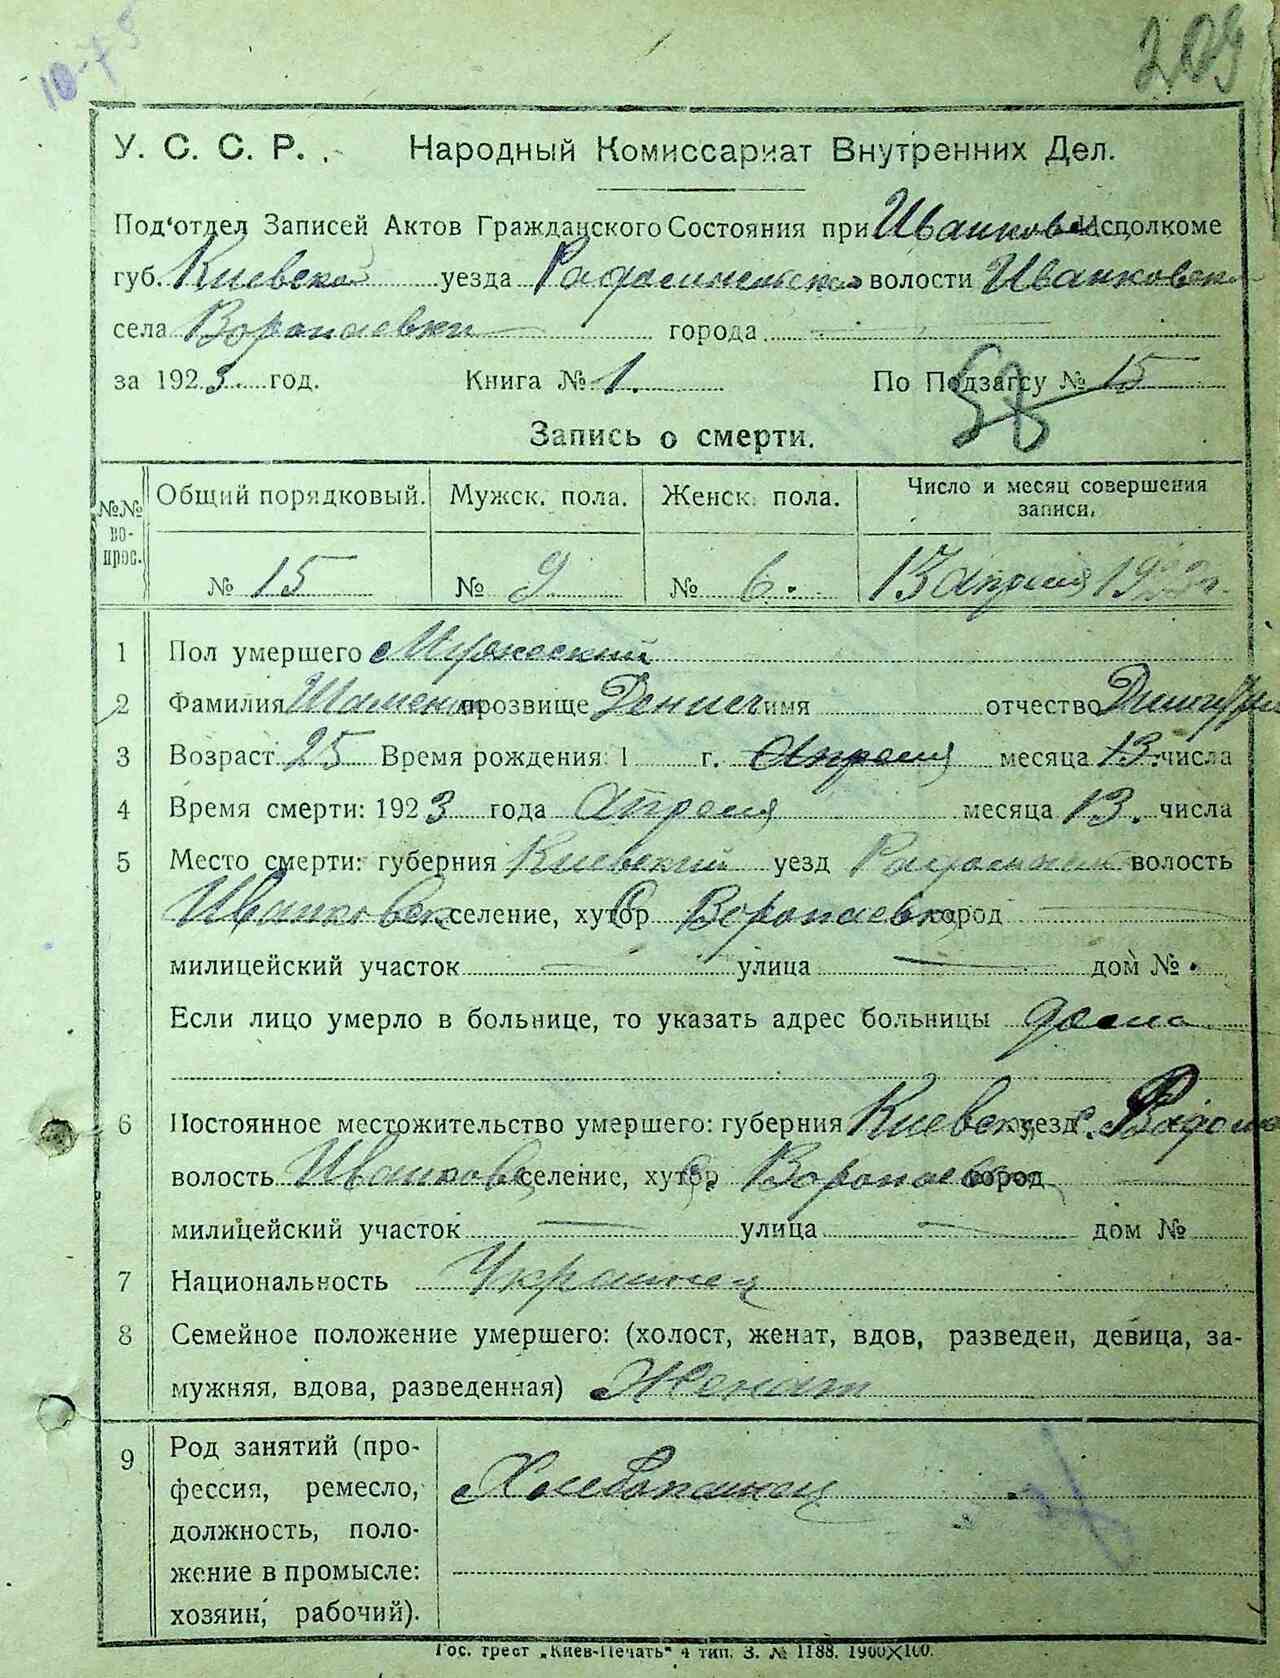 10-75
209
У. С. С. Р. Народный Комиссариат Внутренних Дел.
Под'отдел Записей Актов Гражданского Состояния при Иванковс. Исполкоме
губ. Киевско уезда волости Иванковско
села Воропаевки города
за 1923 год. Книга № 1. По Подзагсу № 15
58
Запись о смерти.
№№ во- прос. Общий порядковый. Мужск. пола. Женск. пола. Число и месяц совершения записи.
№ 15 № 9 № 6. Апреля
1 Пол умершего Мужеский
2 Фамилия прозвище Денис имя отчество
3 Возраст 25 Время рождения: 1 г. Апреля месяца 13. числа
4 Время смерти: 1923 года Апреля месяца 13. числа
5 Место смерти: губерния Киевский уезд волость
Иванковск селение, хутор Воропаевка город
милицейский участок улица дом №
Если лицо умерло в больнице, то указать адрес больницы дома
6 Постоянное местожительство умершего: губерния Киевск уезд
волость Иванковс селение, хутор Воропаевка город
милицейский участок улица дом №
7 Национальность Украинец
8 Семейное положение умершего: (холост, женат, вдов, разведен, девица, за-
мужняя, вдова, разведенная) Женат
9 Род занятий (про- Хлебопашец
фессия, ремесло,
должность, поло-
жение в промысле:
хозяин, рабочий).
Гос. трест „Киев-Печать" 4 тип. З. № 1188. 1900×100.